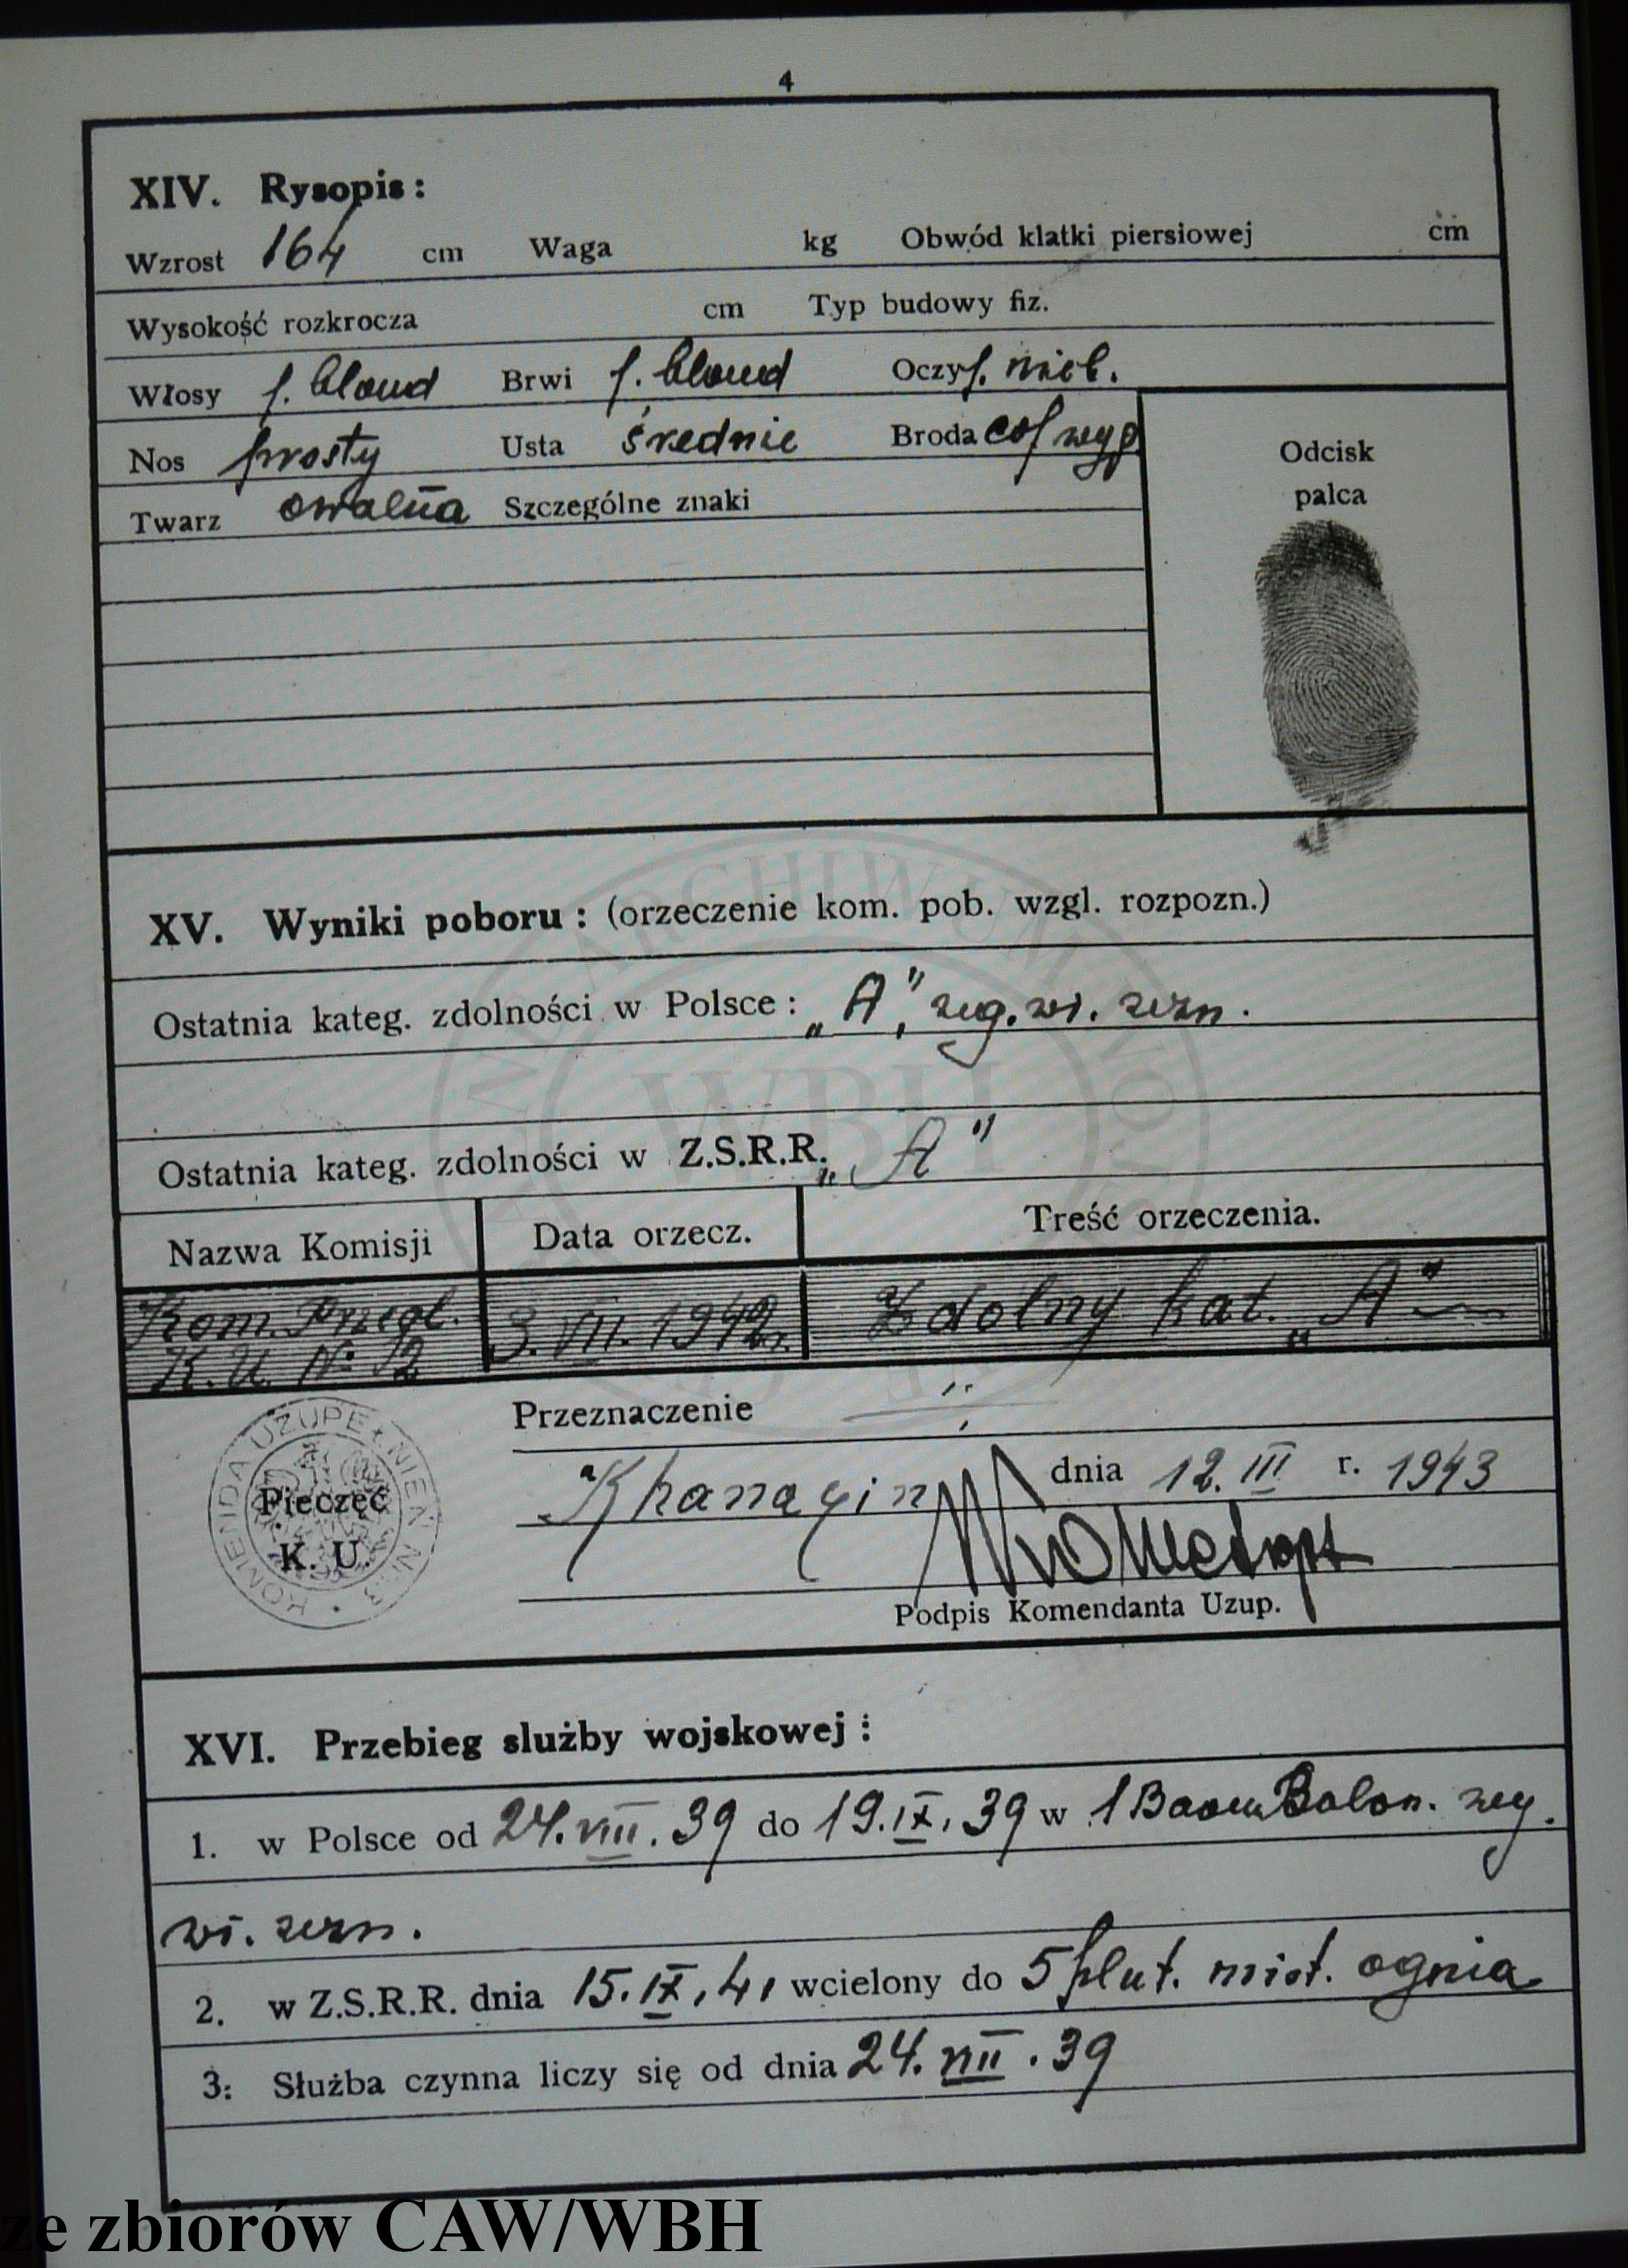 4
XIV. Rysopis:
Wzrost 164 cm Waga kg Obwód klatki piersiowej cm
Wysokość rozkrocza cm Typ budowy fiz.
Włosy j. blond Brwi j. blond Oczy j. nieb.
Nos prosty Usta średnie Broda
Twarz owalna Szczególne znaki
Odcisk
palca
XV. Wyniki poboru: (orzeczenie kom. pob. wzgl. rozpozn.)
Ostatnia kateg. zdolności w Polsce: „A”, zeg. wi. zezn.
Ostatnia kateg. zdolności w Z.S.R.R. „A”
Nazwa Komisji Data orzecz. Treść orzeczenia.
Kom. Przegl. 3. VII. 1942r. Zdolny kat. „A”
K. U. № 12
Przeznaczenie
Khanaqin dnia 12. III r. 1943
Pieczęć
K. U.
KOMENDA UZUPEŁNIEŃ Nr. 3
Podpis Komendanta Uzup.
XVI. Przebieg służby wojskowej:
1. w Polsce od 24. VIII. 39 do 19. IX. 39 w 1 Balon. zeg.
wi. zezn.
2. w Z.S.R.R. dnia 15. IX. 41 wcielony do 5 plut. miot. ognia
3. Służba czynna liczy się od dnia 24. VIII. 39
WBH
ze zbiorów CAW/WBH